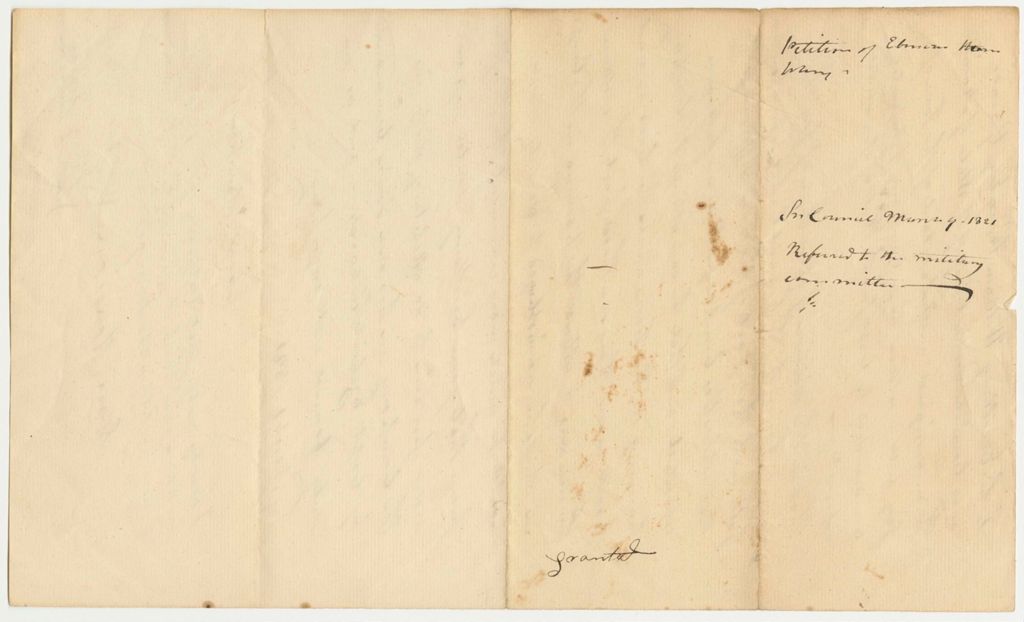 Petition of
In Council March 9. 1821
Referred to the military
committee
granted